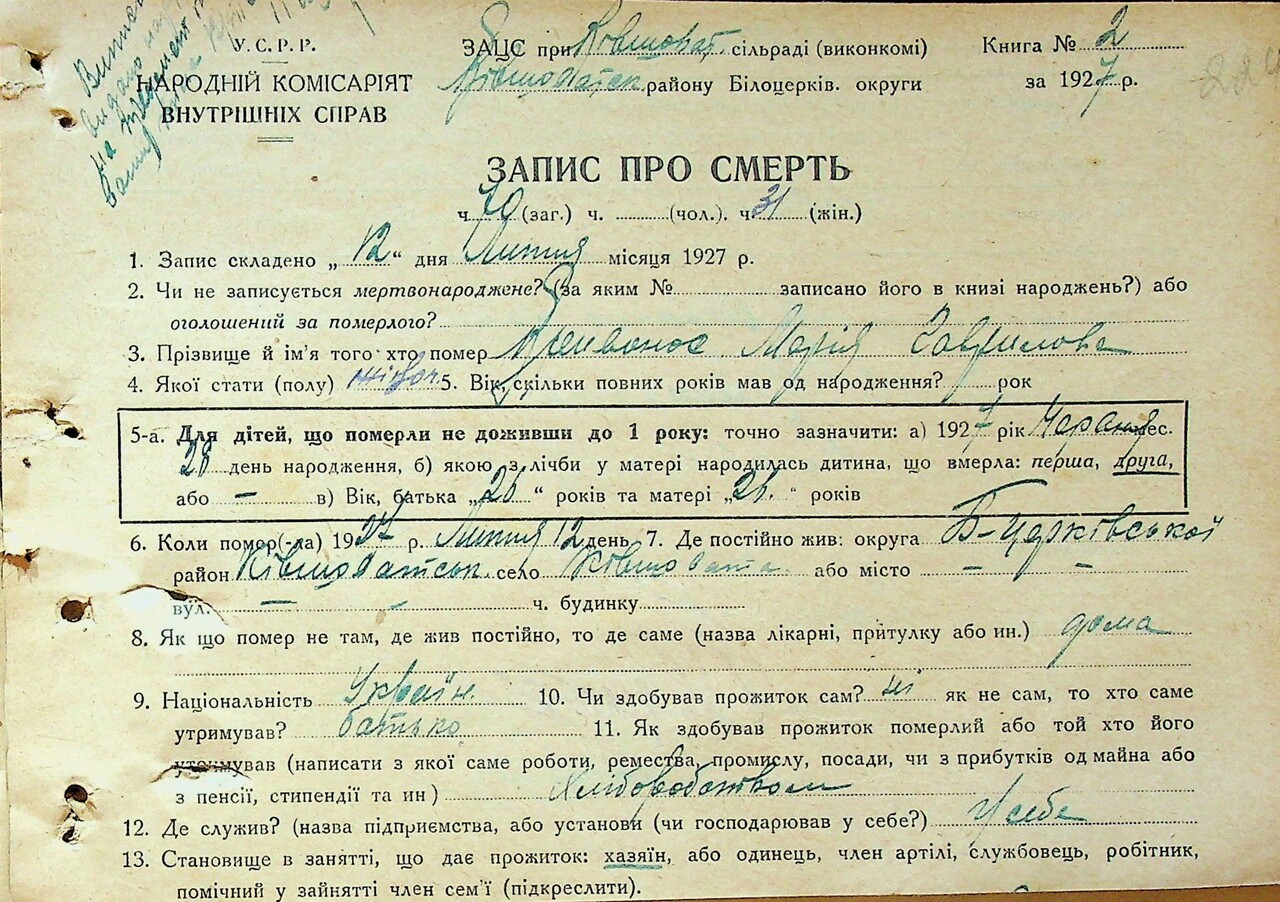 У.С.Р.Р.
НАРОДНІЙ КОМІСАРІЯТ
ВНУТРІШНІХ СПРАВ
ЗАЦС при Ковшоват. сільраді (виконкомі)
Ківшоватськ районy Білоцерків. округи
Книга № 2
за 1927 р.
Видано
на
ЗАПИС ПРО СМЕРТЬ
ч. 70 (заг.) ч. (чол.). ч. 31 (жін.)
1. Запис складено „ 12 “ дня Липня місяця 1927 р.
2. Чи не записується мертвонароджене? (за яким № записано його в книзі народжень?) або
оголошений за померлого?
3. Прізвище й ім'я того хто помер Кривонос Марія Гаврилова
4. Якої стати (полу) жіноч. 5. Вік, скільки повних років мав од народження? рок
5-а. Для дітей, що померли не доживши до 1 року: точно зазначити: а) 1927 рік Червня мес.
28 день народження, б) якою з лічби у матері народилась дитина, що вмерла: перша, друга,
або – в) Вік, батька „26“ років та матері „26.“ років
6. Коли помер(-ла) 1927 р. Липня 12 день 7. Де постійно жив: округа Б-Церківської
район Ківшоватськ. село Ковшовата або місто – –
вул. – – ч. будинку
8. Як що помер не там, де жив постійно, то де саме (назва лікарні, притулку або ин.) дома
9. Національність Україн. 10. Чи здобував прожиток сам? ні як не сам, то хто саме
утримував? батько 11. Як здобував прожиток померлий або той хто його
утримував (написати з якої саме роботи, ремества, промислу, посади, чи з прибутків од майна або
з пенсії, стипендії та ин) Хліборобством
12. Де служив? (назва підприємства, або установи (чи господарював у себе?) У себе
13. Становище в занятті, що дає прожиток: хазяїн, або одинець, член артілі, службовець, робітник,
помічний у зайнятті член сем'ї (підкреслити).